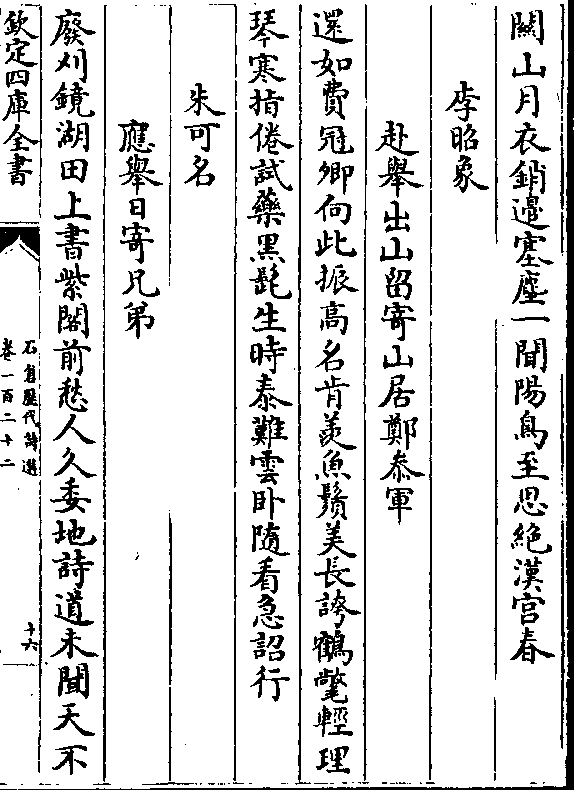 關山月衣銷邉塞塵一聞陽鳥至思絶漢宫春
李昭象
赴舉出山留寄山居鄭叅軍
還如費冠卿向此振高名肯羨魚鬚美長誇鶴氅輕理
琴寒指倦試藥黒髭生時泰難雲卧随看急詔行
朱可名
應舉日寄兄弟
廢刈鏡湖田上書紫閣前愁人久委地詩道未聞天不
欽定四庫全書
石倉歷代詩選
卷一百二十二
十六